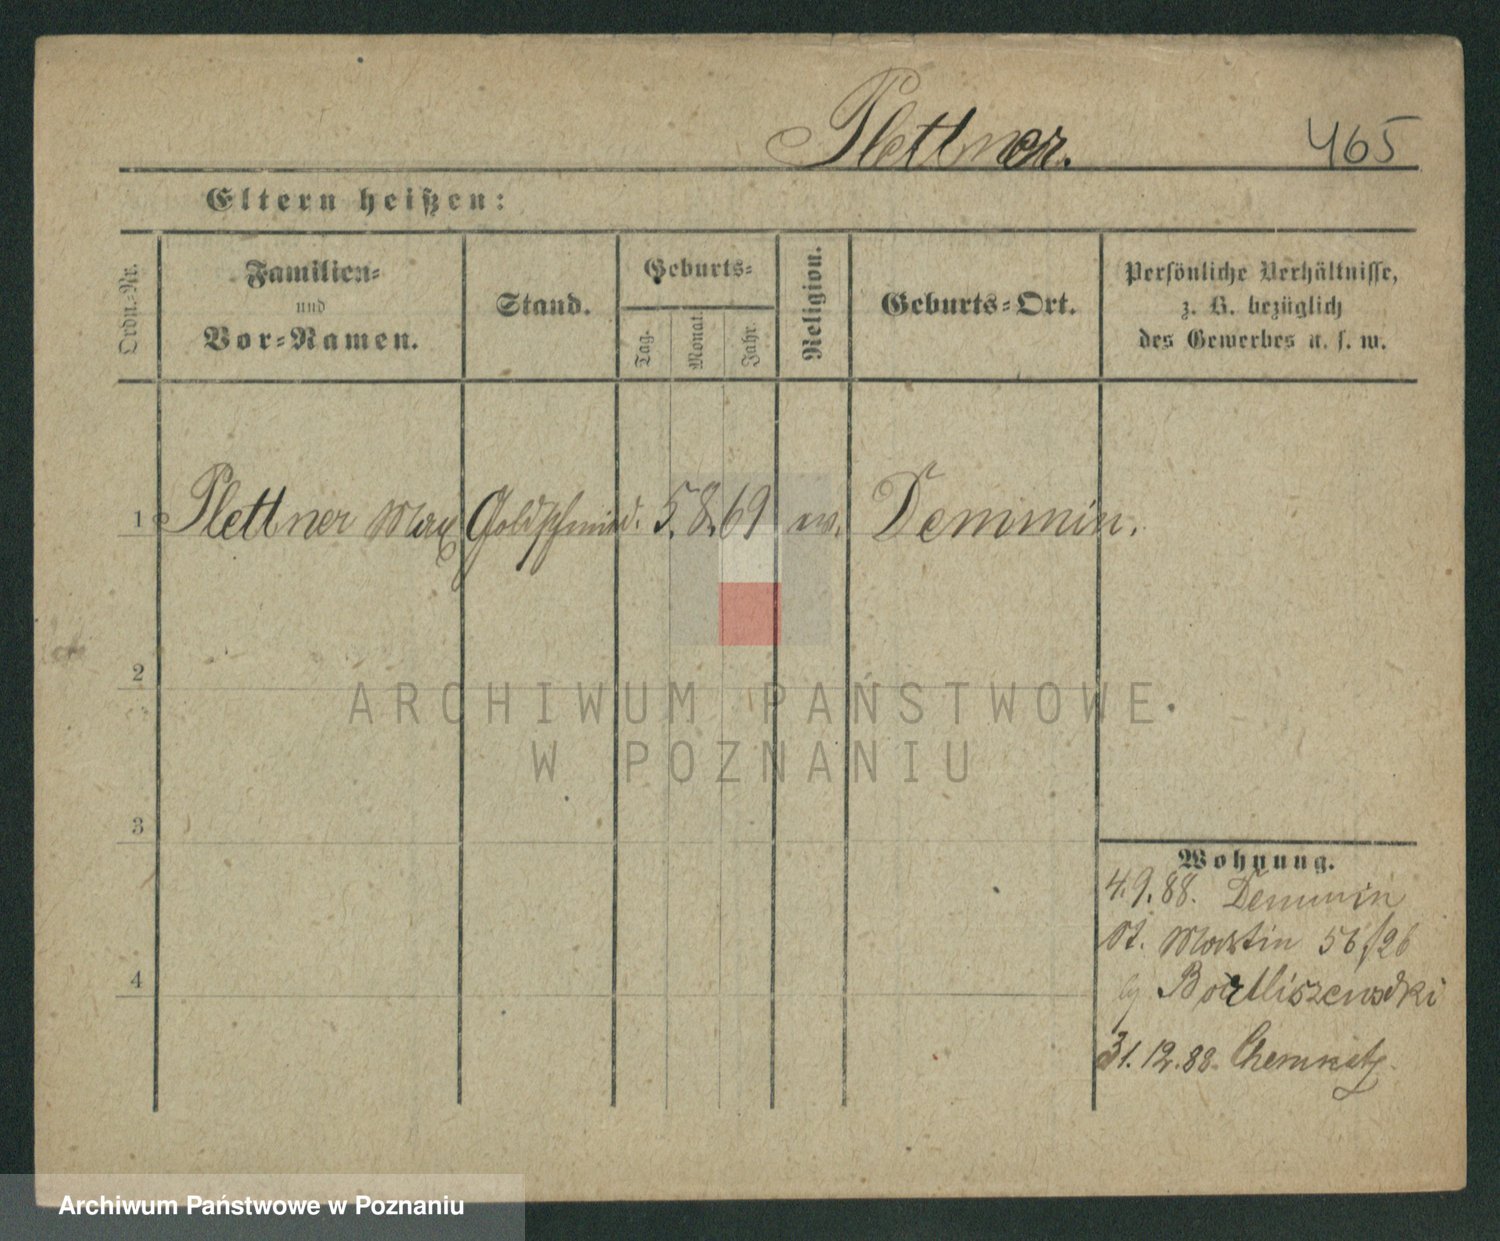 Plettner. 465
Eltern heißen:
Ordn.-Nr.
Familien-
und
Vor-Namen.
Stand.
Geburts-
Tag.
Monat.
Jahr.
Religion.
Geburts-Ort.
Persönliche Verhältnisse,
z. B. bezüglich
des Gewerbes u. s. w.
1 Plettner Max Goldschmied. 5. 8. 69 ev. Demmin.
2
ARCHIWUM PAŃSTWOWE
W POZNANIU
3
Wohnung.
4.9.88. Demmin
St. Martin 56/26
4
31.12.88. Chemnitz.
Archiwum Państwowe w Poznaniu